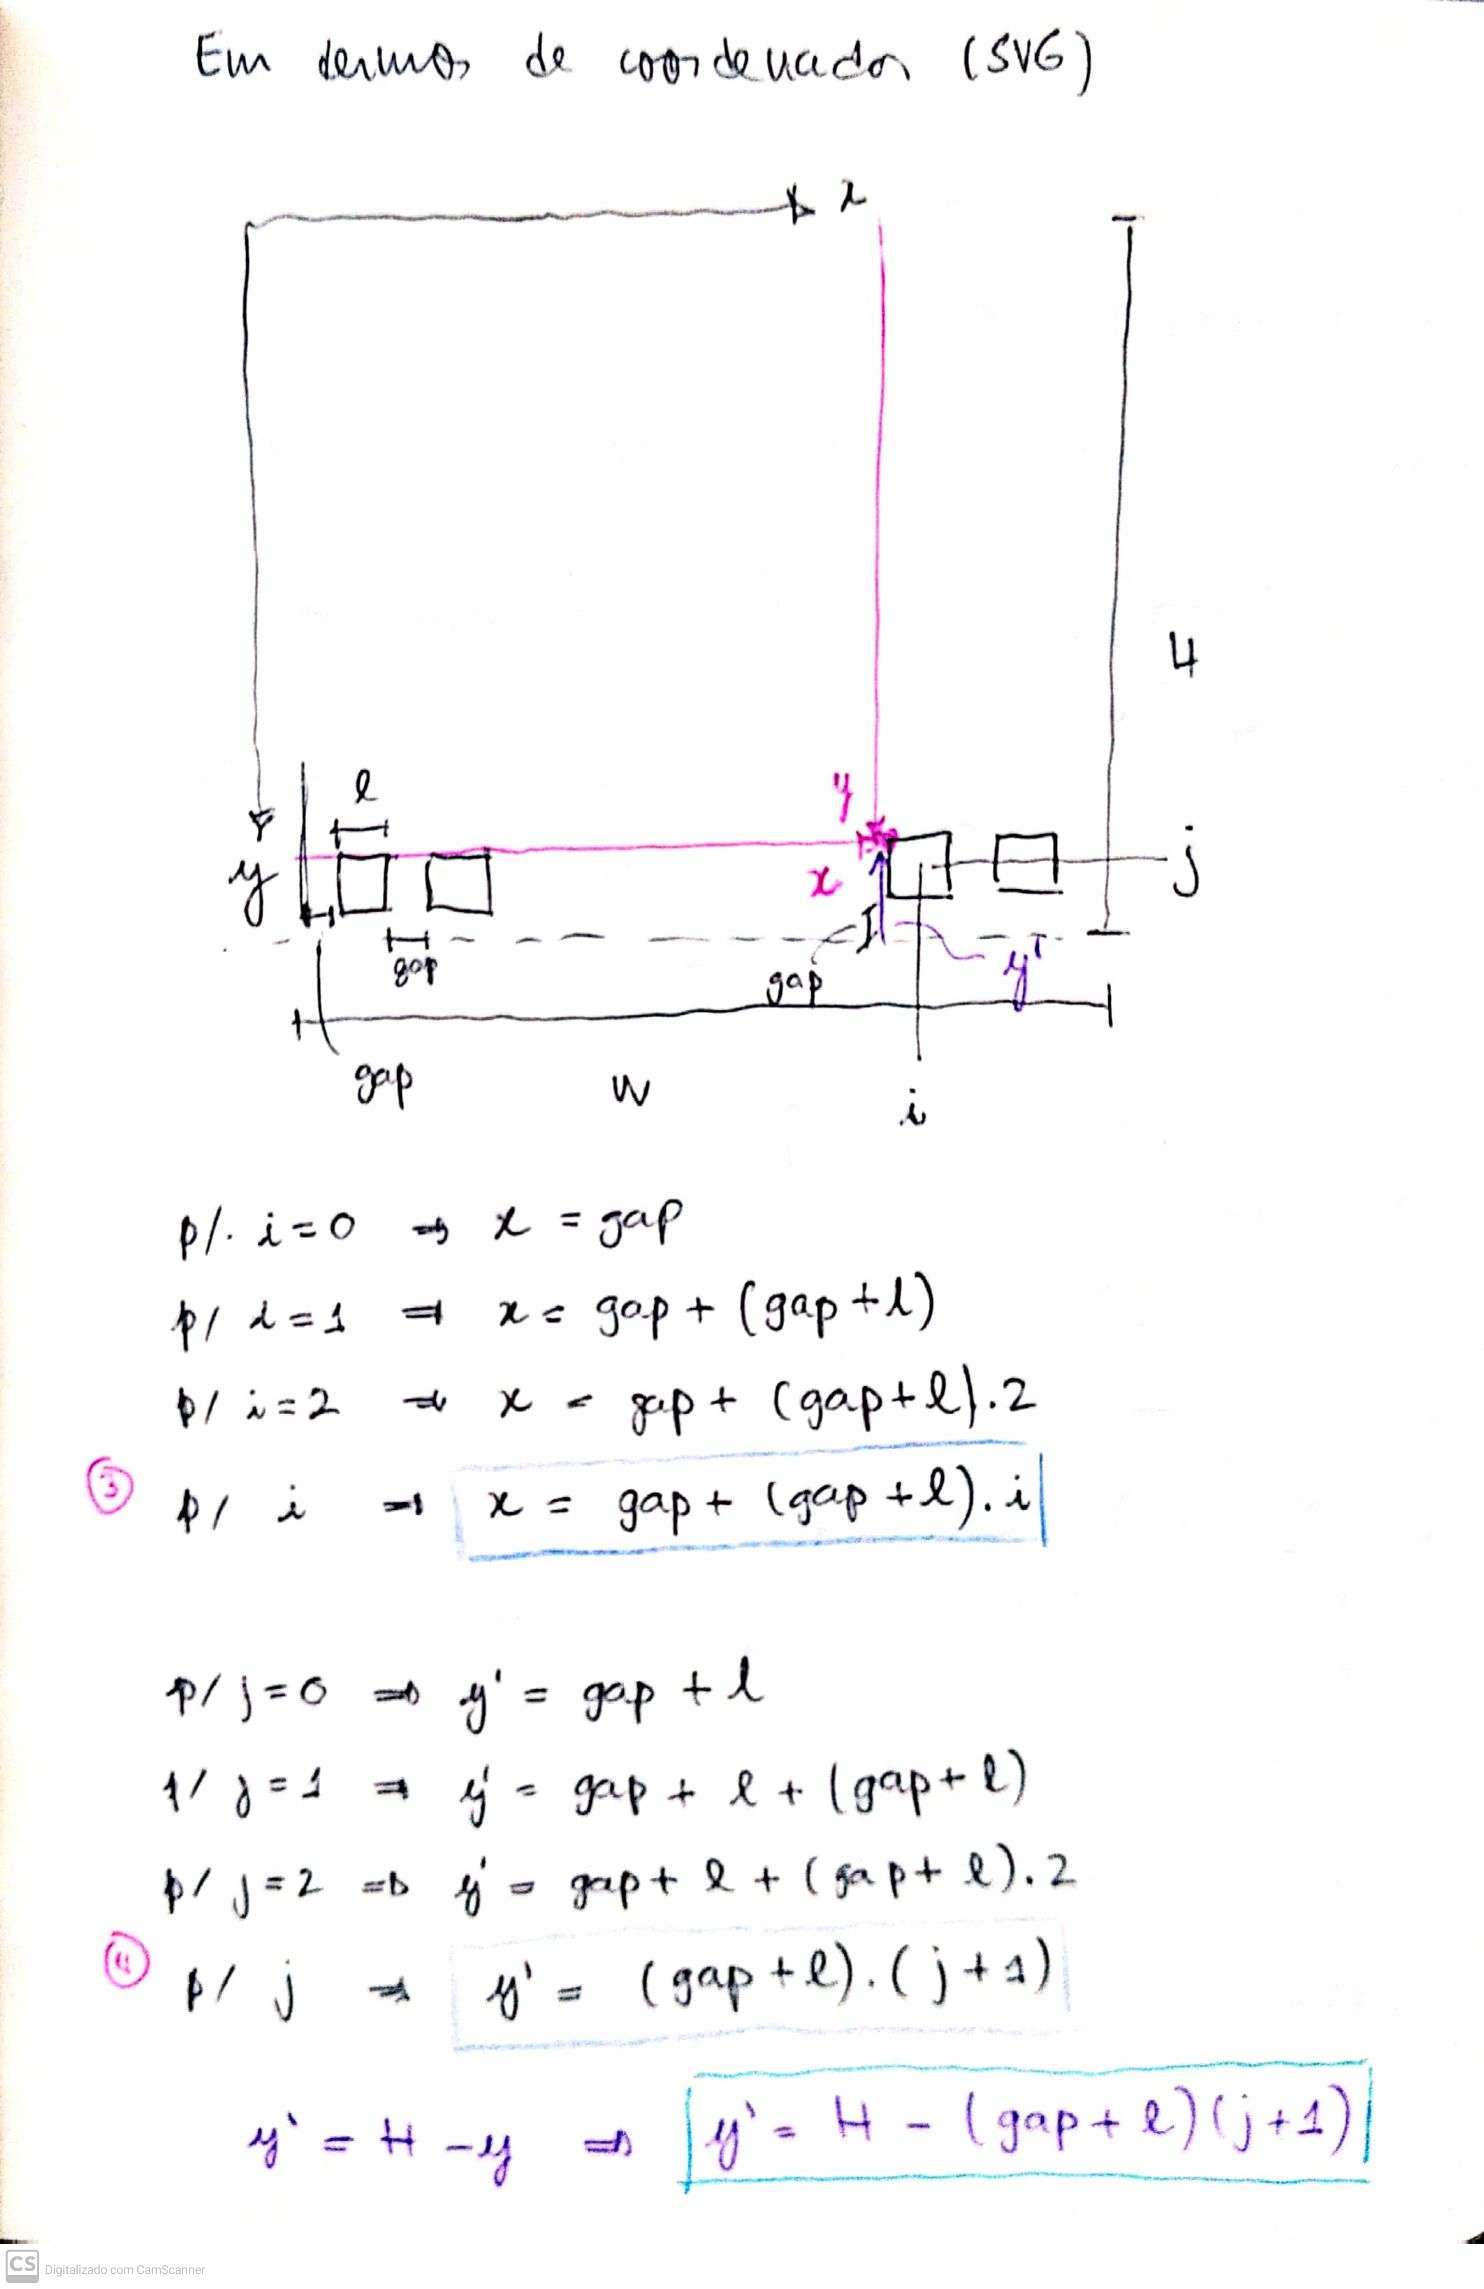 Em termos de coordenadas (SVG)
x
H
l
y
y
x
j
gap
gap
y'
gap
W
i
p/. i=0 ⇒ x = gap
p/ i=1 ⇒ x = gap + (gap+l)
p/ i=2 ⇒ x = gap + (gap+l).2
③ p/ i ⇒ x = gap + (gap+l).i
p/ j=0 ⇒ y' = gap + l
p/ j=1 ⇒ y' = gap + l + (gap+l)
p/ j=2 ⇒ y' = gap + l + (gap+l).2
④ p/ j ⇒ y' = (gap+l).(j+1)
y' = H - y ⇒ y' = H - (gap+l)(j+1)
CS Digitalizado com CamScanner